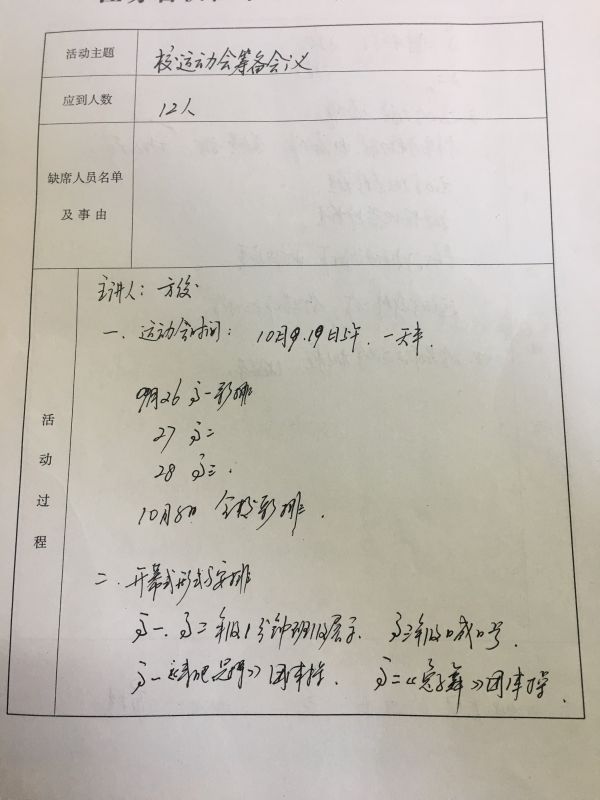 活动主题 校运动会筹备会议
应到人数 12人
缺席人员名单
及事由
活动过程
主讲人：方俊
一、运动会时间：10月9.19日上午.一天半.
9月26 高一彩排
27 高二
28 高三.
10月8日 全校彩排.
二.开幕式形式与安排
高一、高二年级1分钟班级展示 高三年级口号.
高一《》团体操. 高二《扇子舞》团体操.